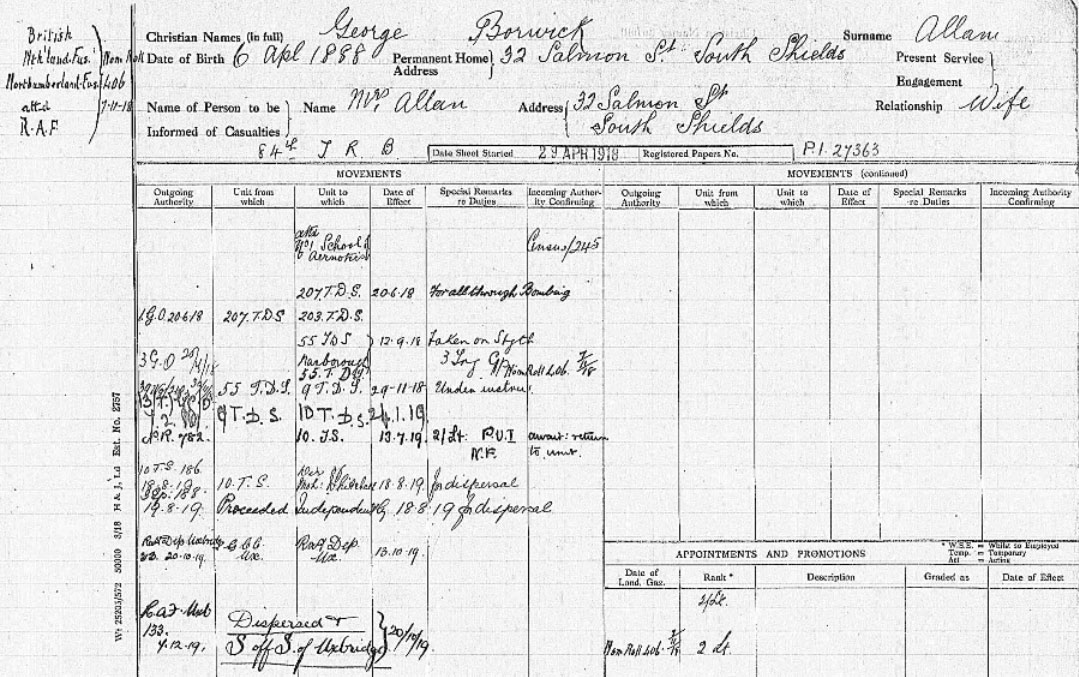 British
Nth'land. Fus.
Northumberland. Fus.
attd
R.A.F.
Nom Roll
406
7-11-18
Christian Names (in full) George Borwick Surname Allan
Date of Birth 6 Apl 1888 Permanent Home Address 32 Salmon St. South Shields Present Service
Engagement
Name of Person to be Informed of Casualties Name Mrs Allan Address 32 Salmon St South Shields Relationship Wife
84th T R B Date Sheet Started 29 APR 1918 Registered Papers No. P.I. 27363
MOVEMENTS MOVEMENTS (continued)
Outgoing Authority Unit from which Unit to which Date of Effect Special Remarks re Duties Incoming Authority Confirming Outgoing Authority Unit from which Unit to which Date of Effect Special Remarks re Duties Incoming Authority Confirming
No 1 School of Aernotics Census/245
207. T.D.S. 20.6.18 For all through Bombing
1 G.O 20.6.18 207. T.D.S 203. T.D.S.
55 TDS 12.9.18 Taken on Stgth
3 G.O Narborough 55. T.D.S. 3 Trg Gp Nom Roll 406.
55 T.D.S. 9 T.D.S. 29-11-18 Under instruc
9 T.D.S. 10 T.D.S. 1.19.
782. 10. T.S. 13.7.19. 2/Lt. P.U.I N.F. await: return to unit.
10 T.S. 186
18.8.19 10. T.S. 18.8.19. for dispersal
188
19.8.19. Proceeded Independently 18.8.19 for dispersal
Raf Dep Uxbridge
20.10.19. Uxe. Raf Dep. Ux. 13.10.19.
R.A.F. Uxb
133.
4.12.19. Dispersed + S off S. of Uxbridge 20/10/19.
* W.S.E. = Whilst so Employed
Temp. = Temporary
Act = Acting
APPOINTMENTS AND PROMOTIONS
Date of Land. Gaz. Rank * Description Graded as Date of Effect
2/Lt.
Nom Roll 406. 2 Lt.
Wt 25203/572 50000 3/18 H & J, Ld Est. No. 2757